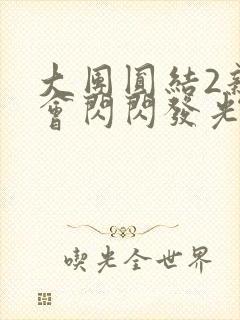 大團圓結2
會閃閃發光
喫光全世界